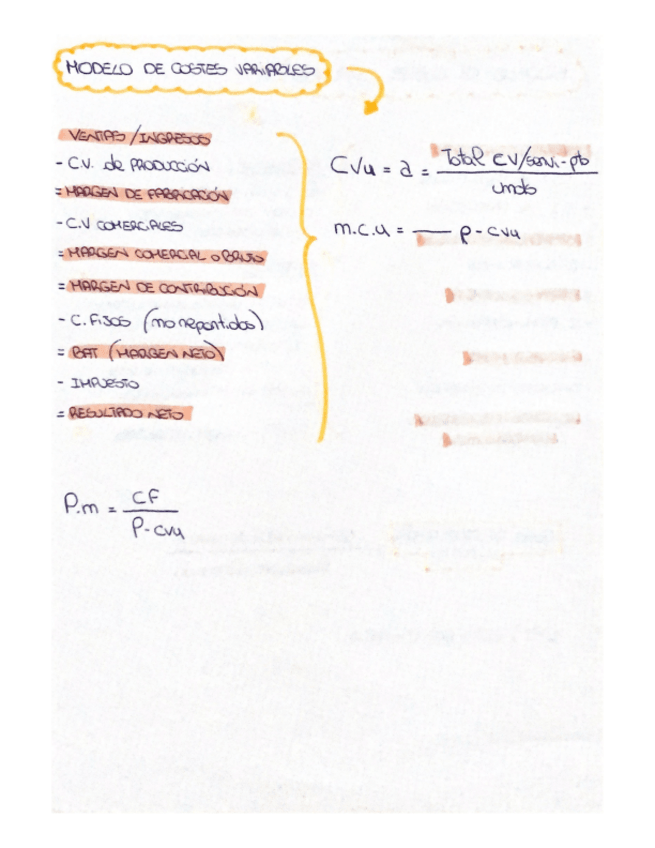 MODELO DE COSTES VARIABLES
VENTAS / INGRESOS
- C.V. de PRODUCCIÓN
= MARGEN DE FABRICACIÓN
- C.V COMERCIALES
= MARGEN COMERCIAL o BRUTO
= MARGEN DE CONTRIBUCIÓN
- C. FISOS (no repartidos)
= BAT (MARGEN NETO)
- IMPUESTO
= RESULTADO NETO
CVu = a = Total CV/servi-pb
unds
m.c.u = — p - cvu
P.m = CF
P - cvu